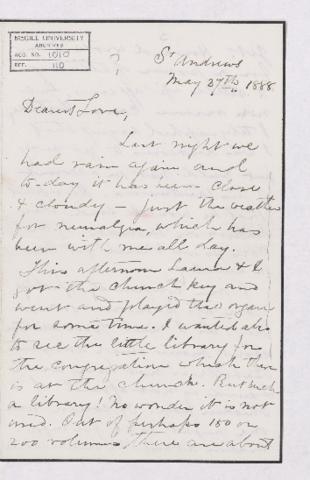 McGILL UNIVERSITY
ARCHIVES
ACC. NO. 1010
REF. 110
?
St Andrews
May 27th 1888
Dearest Love,
Last night we
had rain again and
to-day it has been close
& cloudy – just the weather
for neuralgia, which has
been with me all day.
This afternoon Laura & I
got the church key and
went and played the organ
for some time. I wanted also
to see the little library for
the congregation which there
is at the church. But such
a library! No wonder it is not
used. Out of perhaps 150 or
200 volumes there are about